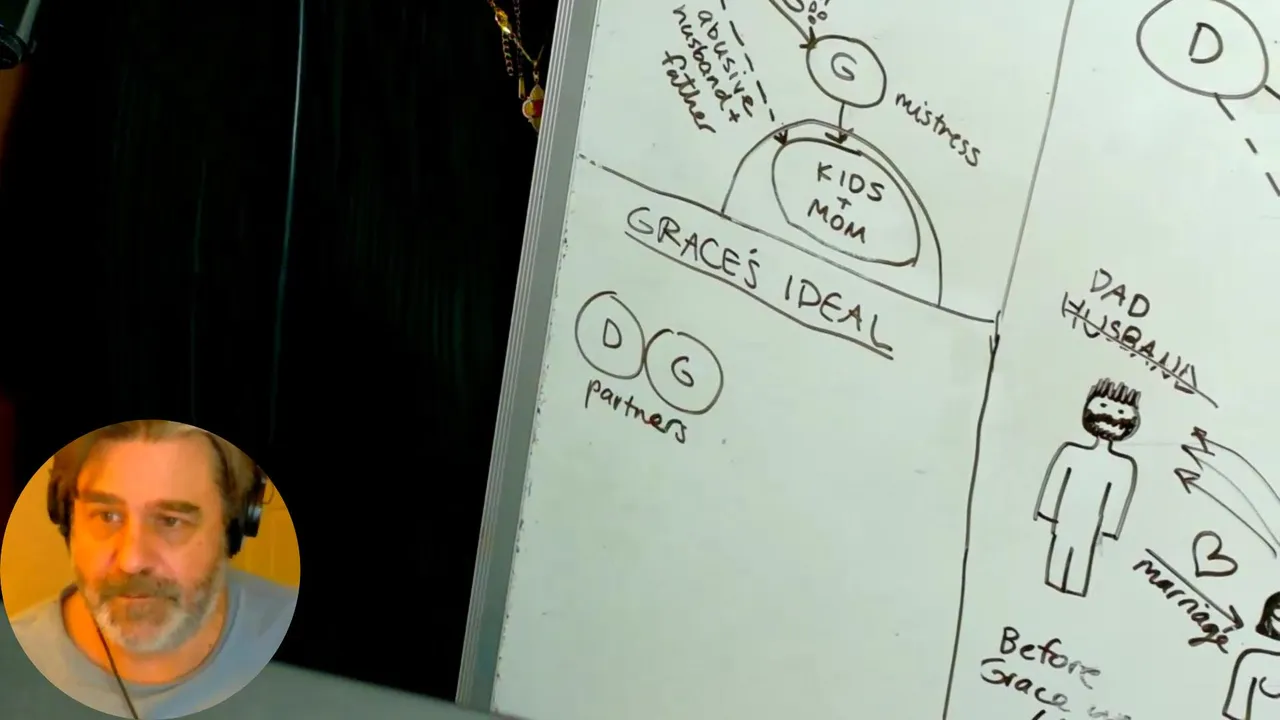 abusive
husband +
father
G
mistress
KIDS
+
MOM
GRACE'S IDEAL
D
G
partners
D
DAD
HUSBAND
marriage
Before
Grace